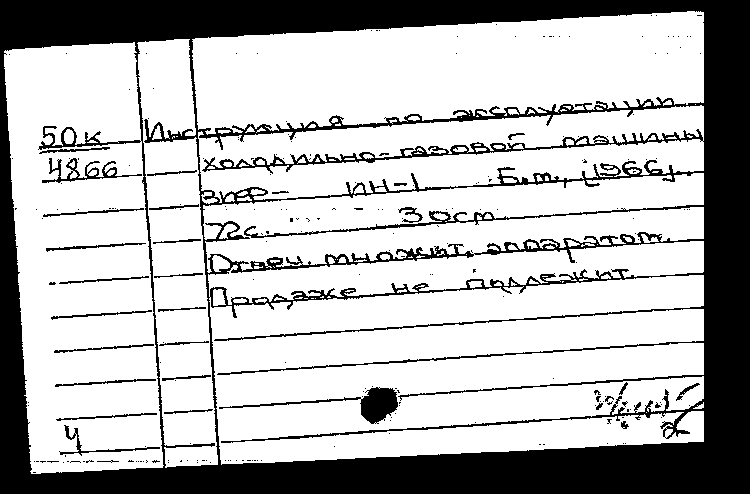 50к Инструкция по эксплуатации
4866 холодильно-газовой машины
ЗИФ- ИН-1 Б.м., [1966].
72с. 30см
Отпеч. множит. аппаратом.
Продаже не подлежит.
Ч